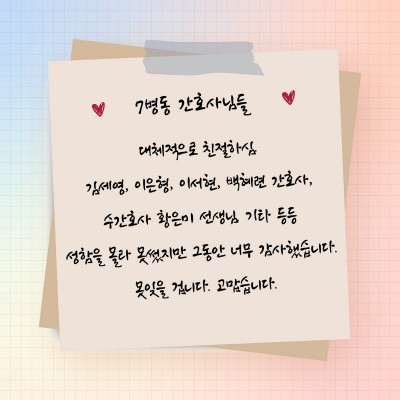 7병동 간호사님들
대체적으로 친절하심
김세영, 이은형, 이서현, 백혜련 간호사,
수간호사 황은미 선생님 기타 등등
성함을 몰라 못썼지만 그동안 너무 감사했습니다.
못잊을 겁니다. 고맙습니다.